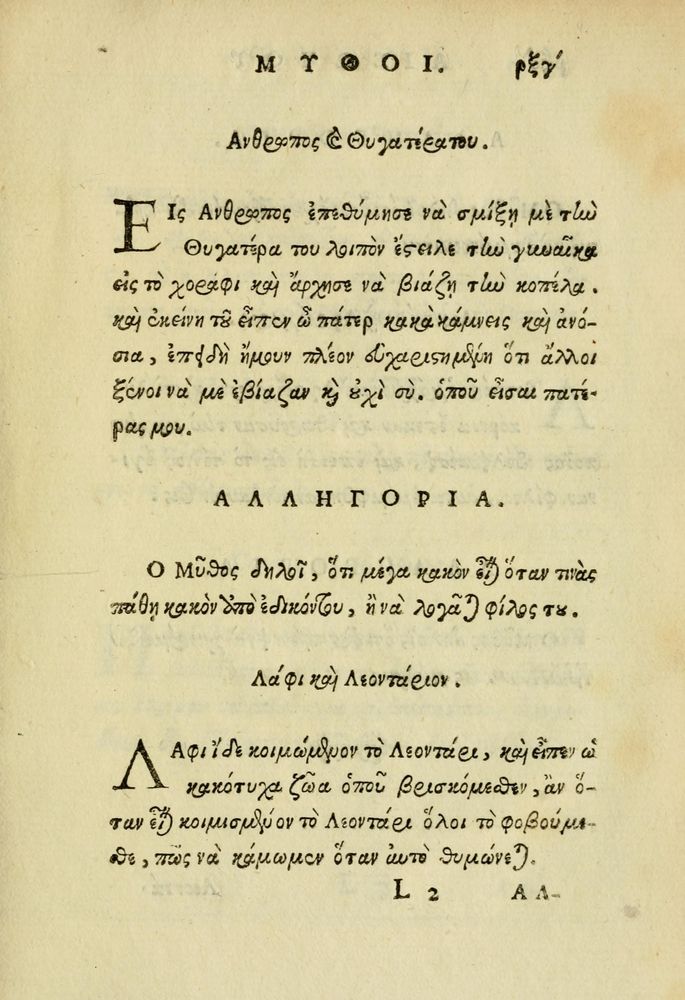 ΜΥΘΟΙ. ρξγʹ
Ανθρωπος & Θυγατέρατου.
ΕΙς Ανθρωπος ἐπεθύμησε νὰ σμίξῃ μὲ τὴν
Θυγατέρα του λοιπὸν ἔςειλε τὴν γυναῖκα
εἰς τὸ χοράφι καὶ ἄρχησε νὰ βιάζῃ τὴν κοπέλα.
καὶ ἐκείνη τοῦ εἶπεν ὦ πάτερ κακὰ κάμνεις καὶ ἀνό-
σια, ἐπειδὴ ἤμουν πλέον εὐχαριςημένη ὅτι ἄλλοι
ξένοι νὰ μὲ ἐβίαζαν καὶ οὐχὶ σὺ. ὁποῦ εἶσαι πατέ-
ρας μου.
ΑΛΛΗΓΟΡΙΑ.
Ο Μῦθος δηλοῖ, ὅτι μέγα κακὸν εἶναι ὅταν τινὰς
πάθῃ κακὸν ὑπὸ ἐδικόντου, ἢ νὰ λογᾶται φίλος του.
Λάφι καὶ Λεοντάριον.
ΛΑφι ἴδε κοιμώμενον τὸ Λεοντάρι, καὶ εἶπεν ὦ
κακότυχα ζῶα ὁποῦ βρισκόμεθεν, ἂν ὅ-
ταν εἶναι κοιμισμένον τὸ Λεοντάρι ὅλοι τὸ φοβούμε-
θε, πῶς νὰ κάμωμεν ὅταν αὐτὸ θυμώνεται.
L 2 ΑΛ-